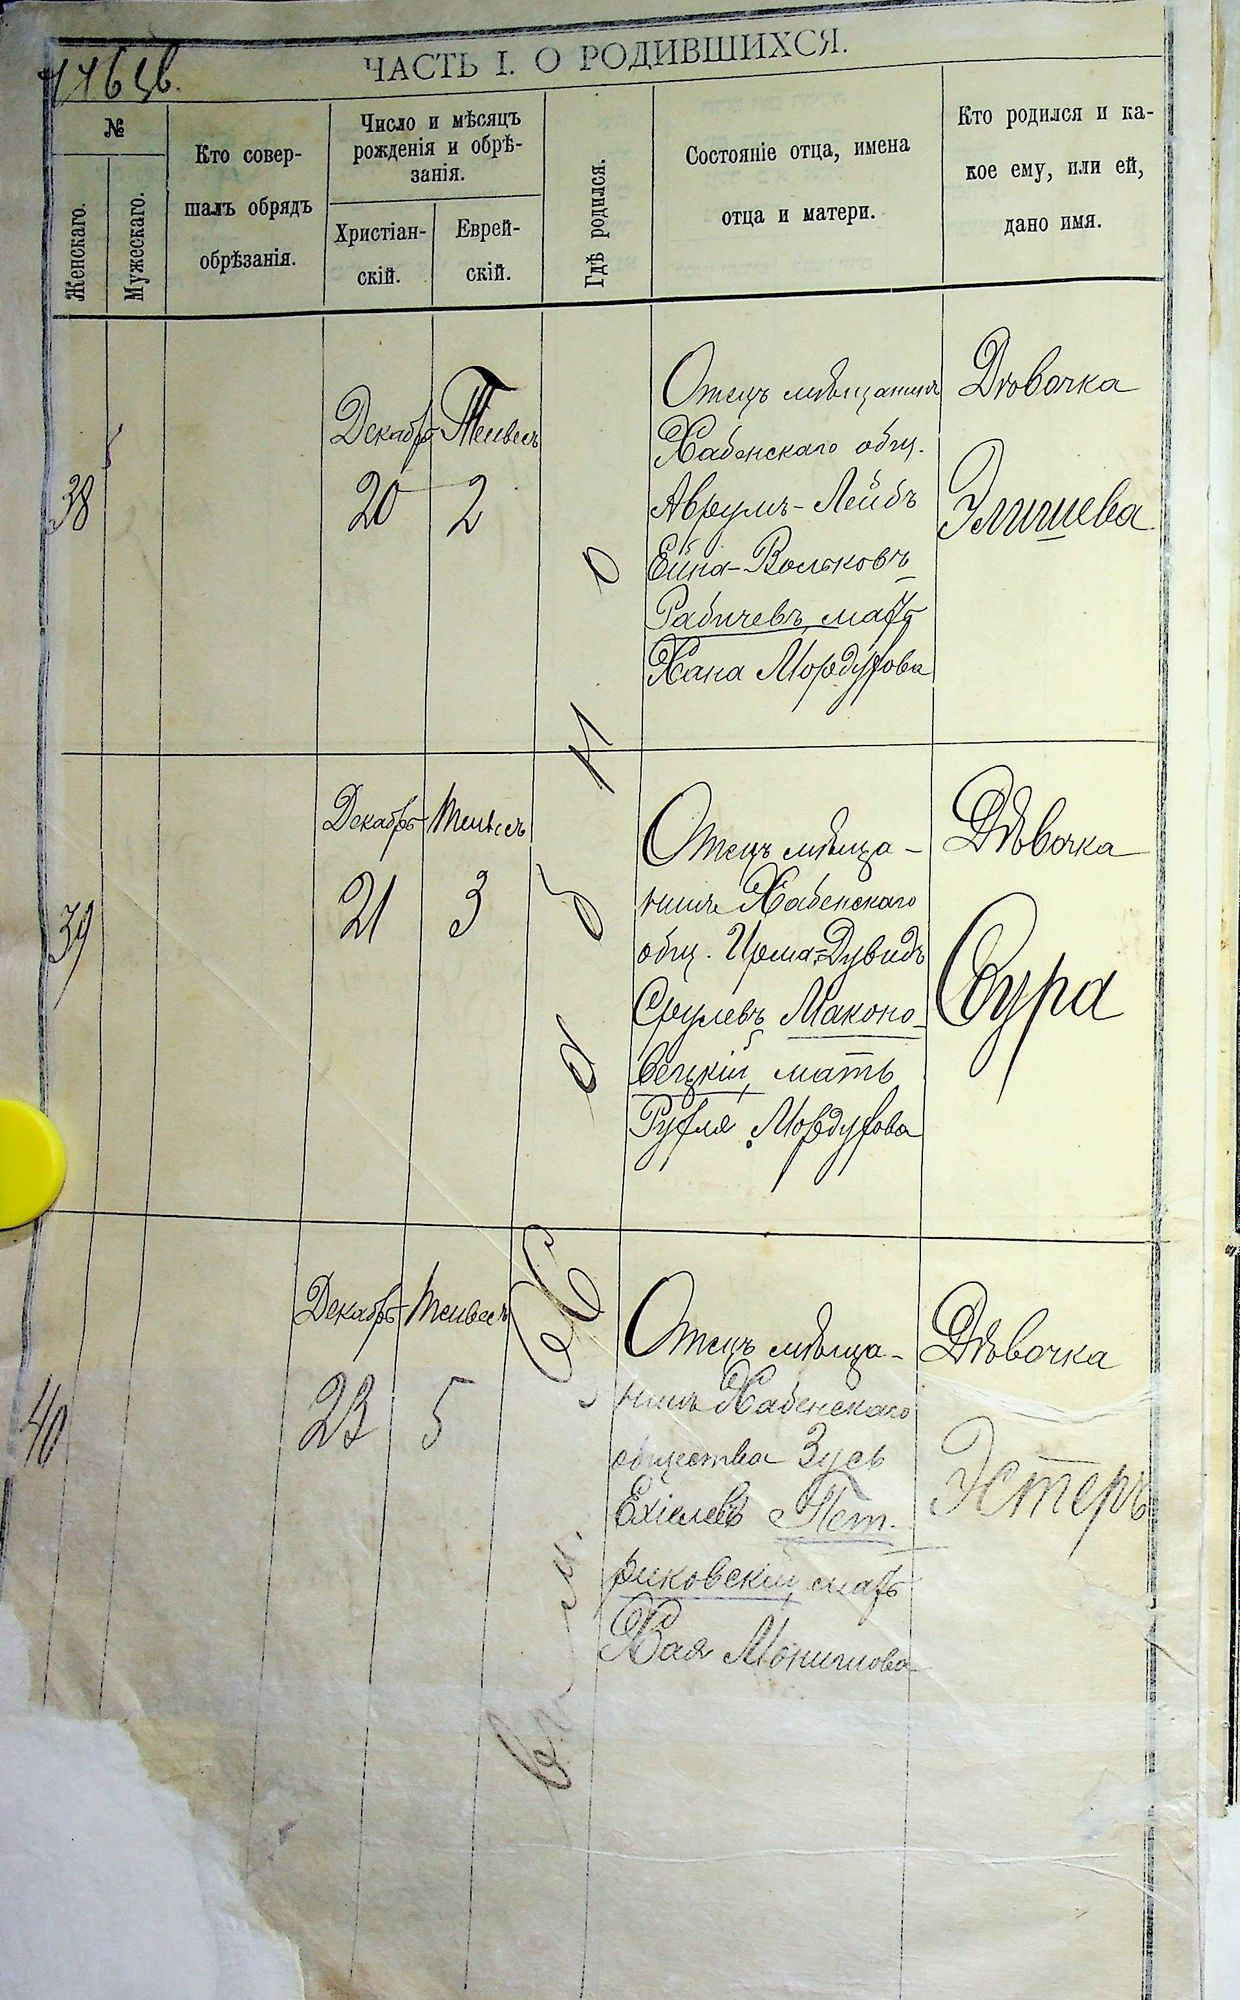 ЧАСТЬ I. О РОДИВШИХСЯ.
№
Женскаго.
Мужескаго.
Кто совер-
шалъ обрядъ
обрѣзанія.
Число и мѣсяцъ
рожденія и обрѣ-
занія.
Христіан-
скій.
Еврей-
скій.
Гдѣ родился.
Состояніе отца, имена
отца и матери.
Кто родился и ка-
кое ему, или ей,
дано имя.
38
Декабр
20
Тейвесъ
2
Отецъ мѣщанинъ
Хабенскаго общ.
Аврумъ-Лейбъ
Ейна-Вольковъ
Рабичевъ, мать
Хана Мордухова
Дѣвочка
Элишева
39
Декабрь
21
Тейвесъ
3
Отецъ мѣща-
нинъ Хабенскаго
общ. Ирма-Дувидъ
Срулевъ Маконо-
вецкій, мать
Рухля Мордухова
Дѣвочка
Сура
40
Декабрь
23
Тейвесъ
5
Отецъ мѣща-
нинъ Хабенскаго
общества Зусь
Ехіелевъ Пет-
риковскій, мать
Хая Монишова
Дѣвочка
Эстеръ
въ м. Хабно